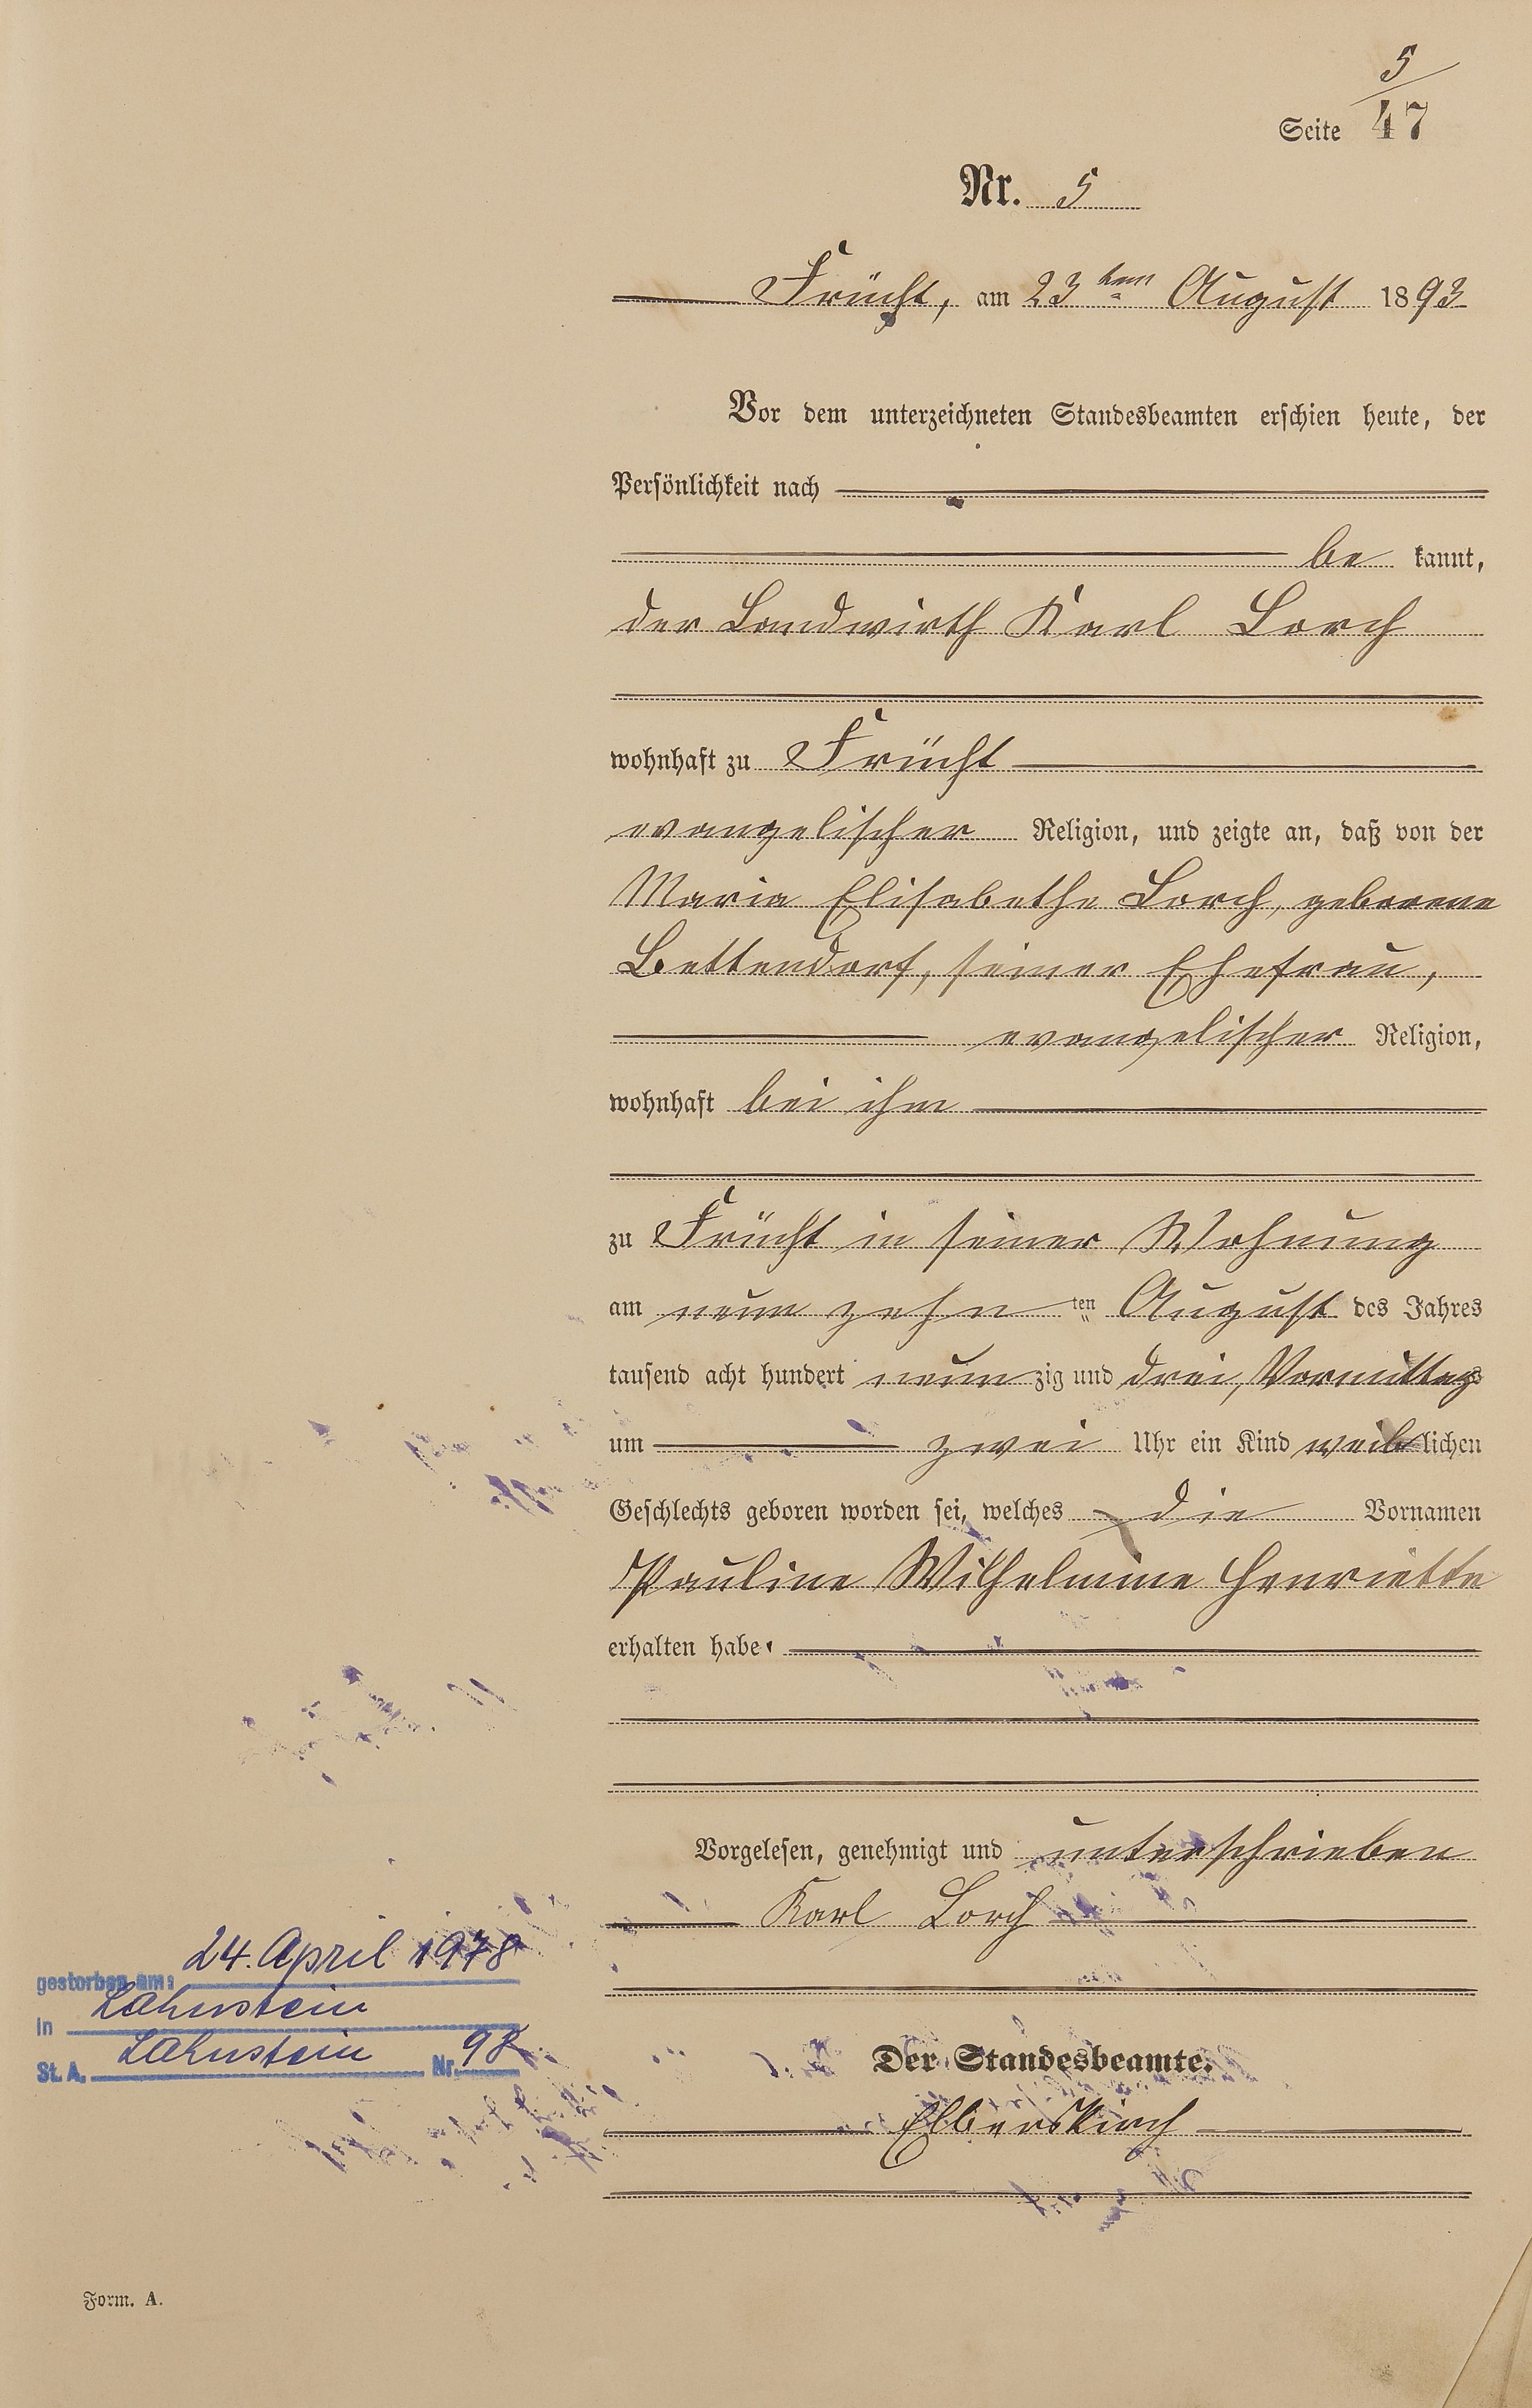 5
Seite 47
Nr. 5
Frücht, am 23ten August 1893
Vor dem unterzeichneten Standesbeamten erschien heute, der
Persönlichkeit nach
be kannt,
der Landwirth Karl Lorch
wohnhaft zu Frücht
evangelischer Religion, und zeigte an, daß von der
Maria Elisabethe Lorch, geborene
Bettendorf, seiner Ehefrau,
evangelischer Religion,
wohnhaft bei ihm
zu Frücht in seiner Wohnung
am neun zehn ten August des Jahres
tausend acht hundert neun zig und drei, Vormittags
um zwei Uhr ein Kind weiblichen
Geschlechts geboren worden sei, welches die Vornamen
Pauline Wilhelmine Henriette
erhalten habe.
Vorgelesen, genehmigt und unterschrieben
Karl Lorch
gestorben am: 24. April 1978
in Lahnstein
St. A. Lahnstein Nr. 98
Der Standesbeamte.
Elberskirch
Form. A.